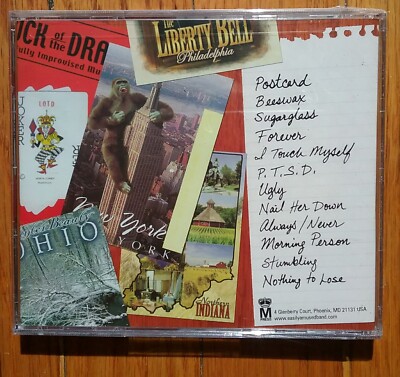 THE
LIBERTY BELL
Philadelphia
of the DRA
Improvised
JOKER
New York
YORK
OHIO
Northern
INDIANA
Postcard
Beeswax
Sugarglass
Forever
I Touch Myself
P.T.S.D.
Ugly
Nail Her Down
Always/Never
Morning Person
Stumbling
Nothing to Lose
M
4 Glenberry Court, Phoenix, MD 21131 USA
www.easilyamusedband.com